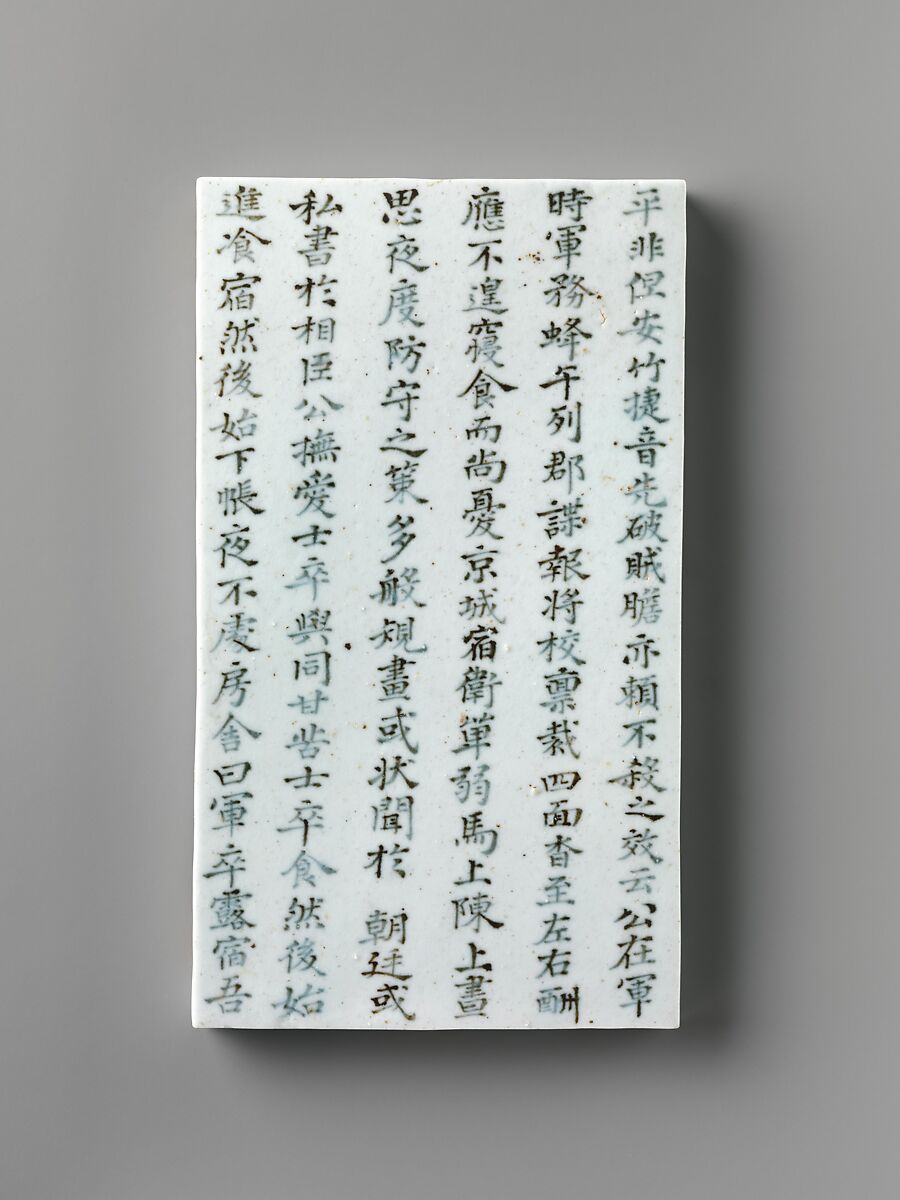 平非但安竹捷音先破賊瞻亦賴不殺之效云公在軍
時軍務蜂午列郡諜報將校稟裁四面沓至左右酬
應不遑寢食而尚憂京城宿衛單弱馬上陳上晝
思夜度防守之策多般規畫或狀聞於 朝廷或
私書於相臣公撫愛士卒與同甘苦士卒食然後始
進飡宿然後始下帳夜不處房舍曰軍卒露宿吾